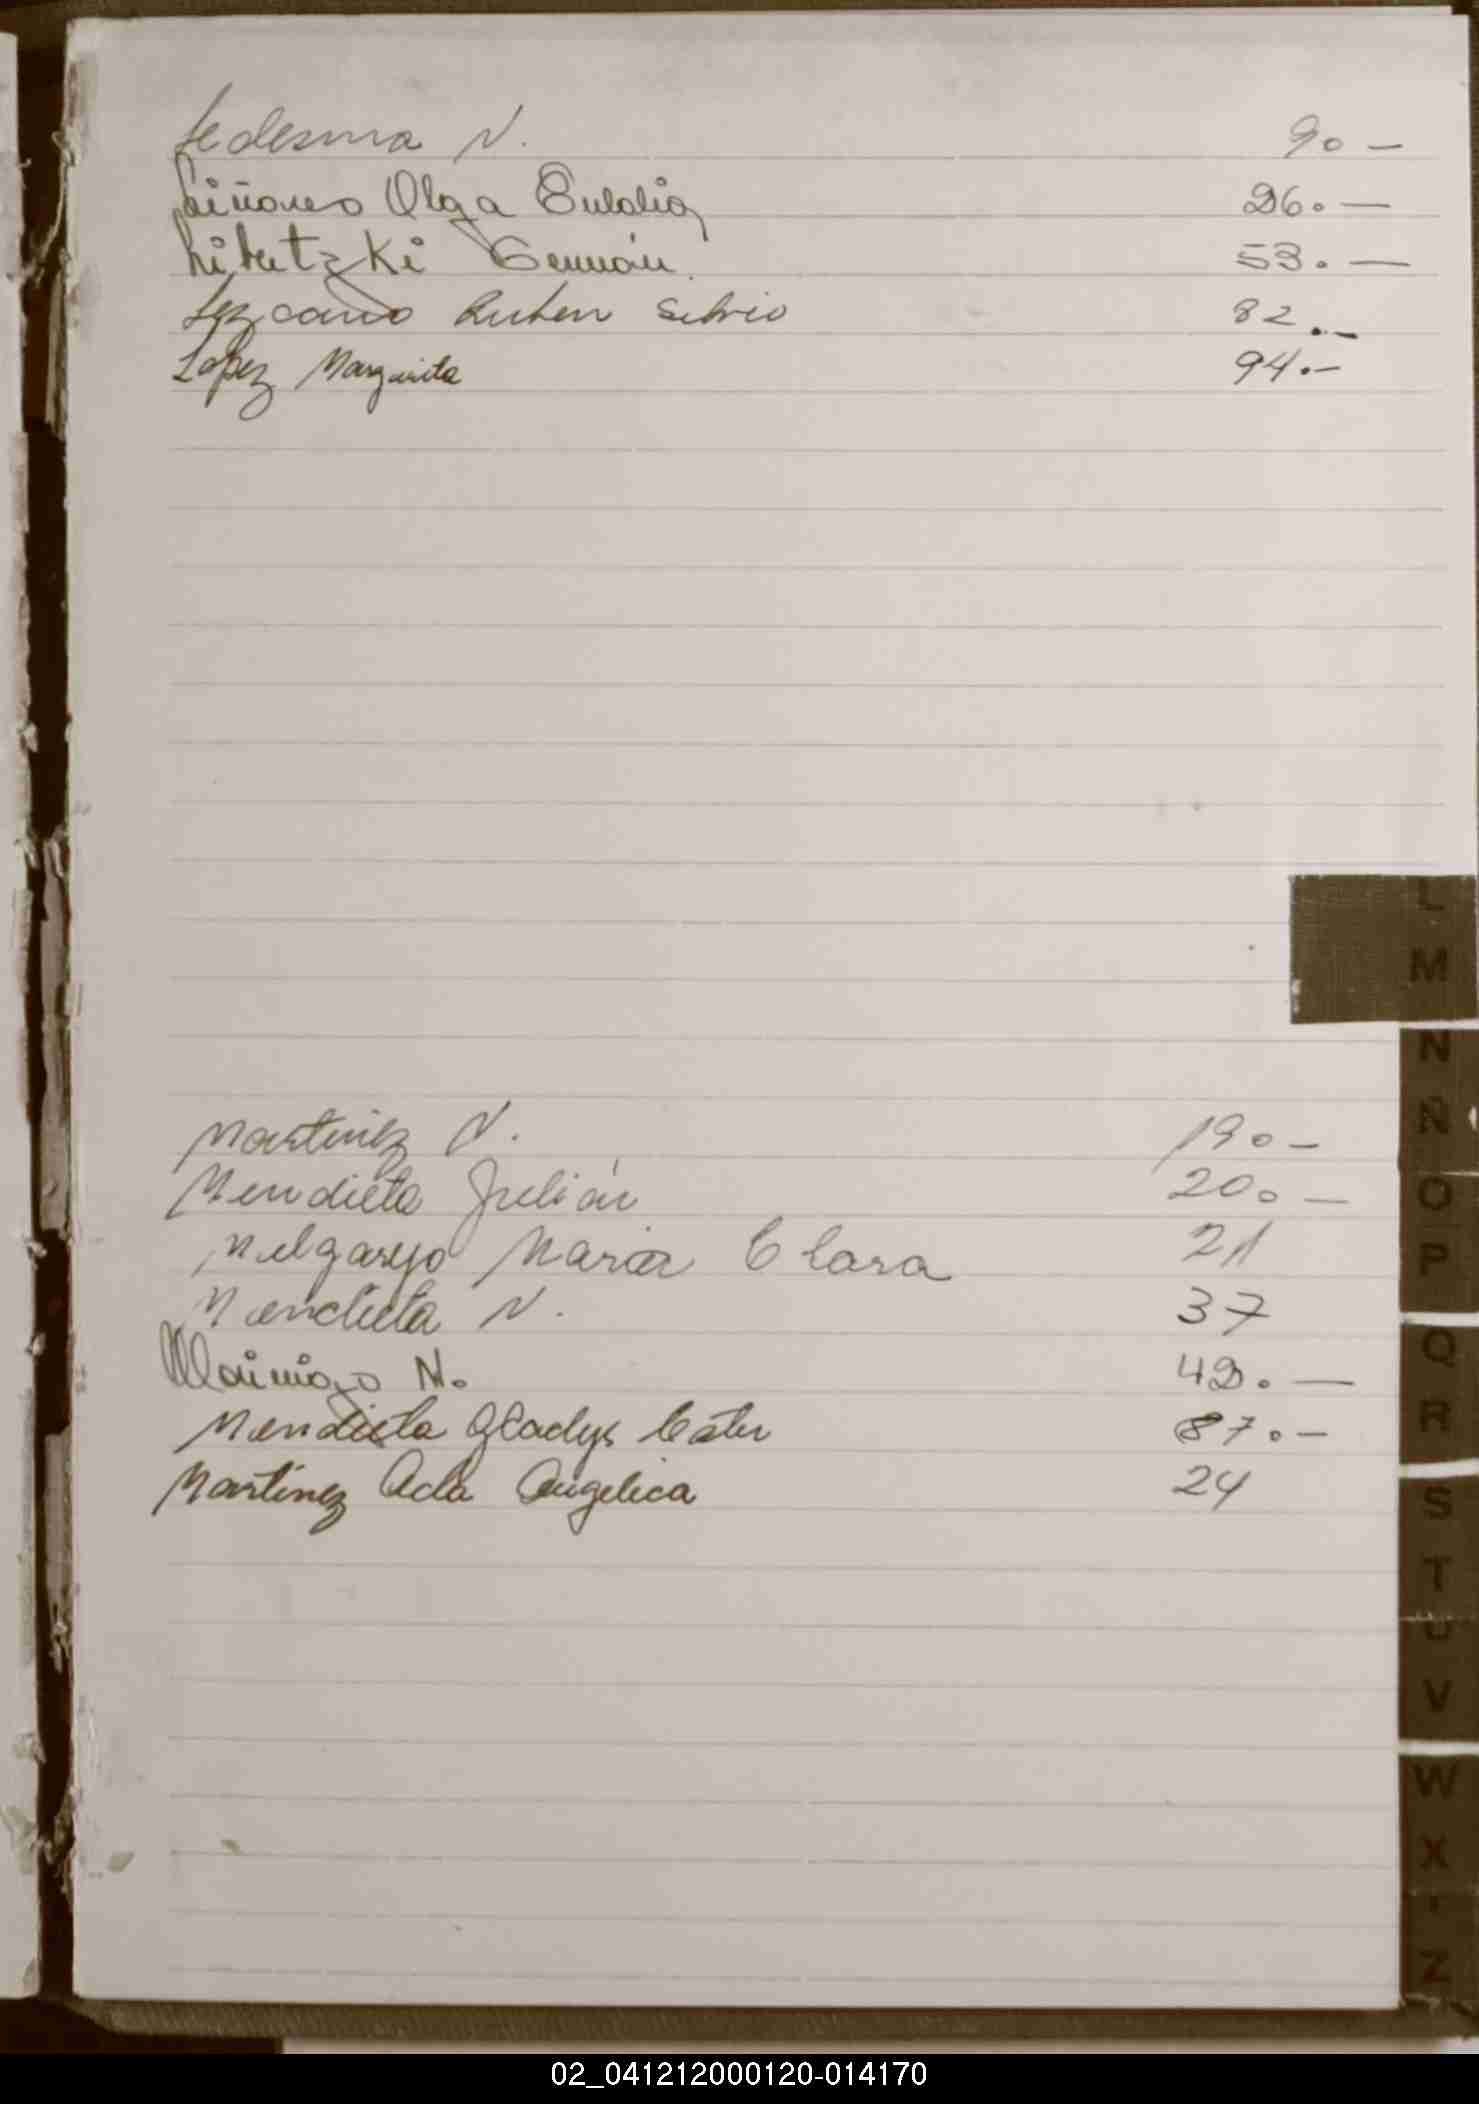 Ledesma N. 90 —
Liñares Olga Eulalia 26. —
Germán. 53. —
Lezcano Ruben Silvio 82 . –
Lopez Margarita 94. –
L
M
N
Ñ
Martinez N. 190 –
Mendieta Julián 20. —
O
Melgarejo Maria Clara 21
P
Mendieta N. 37
Q
N. 42. —
Mendieta Gladys 87. –
R
Martinez Ada Angelica 24
S
T
U
V
W
X
Z
02_041212000120-014170